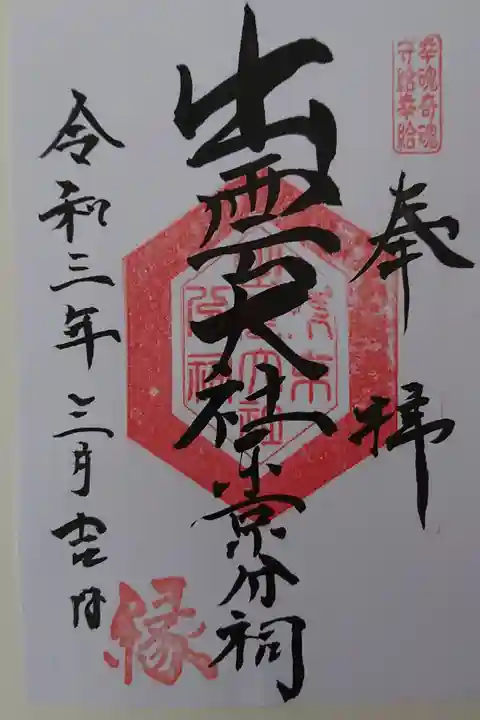 幸魂奇魂
守給幸給
奉拝
出雲大社東京分祠
令和三年三月吉日
縁